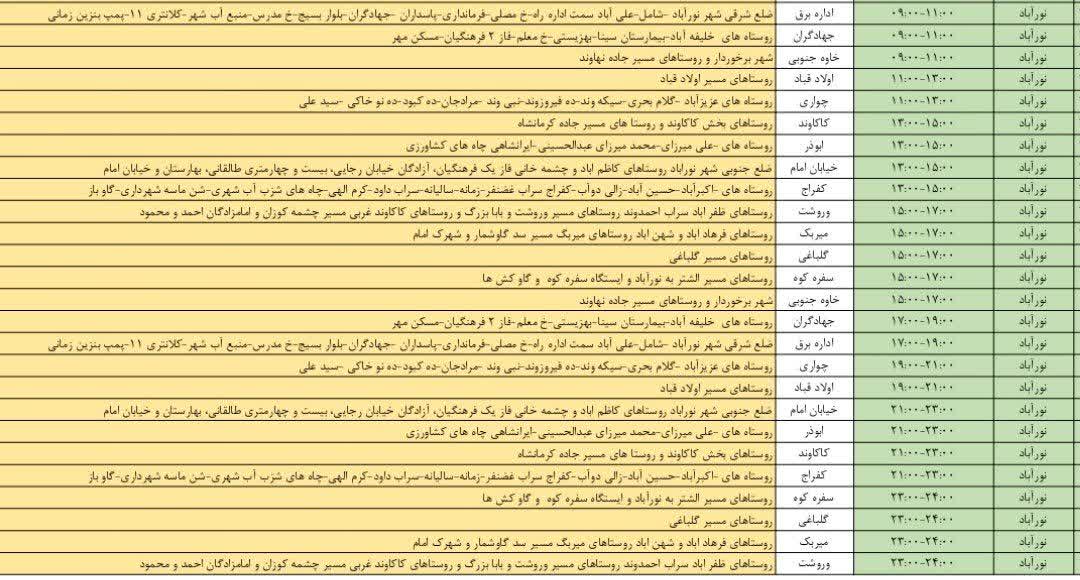 نورآباد ۰۹:۰۰-۱۱:۰۰ اداره برق ضلع شرقی شهر نورآباد -شامل-علی آباد سمت اداره راه-خ مصلی-فرمانداری-پاسداران -جهادگران-بلوار بسیج-خ مدرس-منبع آب شهر-کلانتری ۱۱-پمپ بنزین زمانی
نورآباد ۰۹:۰۰-۱۱:۰۰ جهادگران روستاه های خلیفه آباد-بیمارستان سینا-بهزیستی-خ معلم-فاز ۲ فرهنگیان-مسکن مهر
نورآباد ۰۹:۰۰-۱۱:۰۰ خاوه جنوبی شهر برخوردار و روستاهای مسیر جاده نهاوند
نورآباد ۱۱:۰۰-۱۳:۰۰ اولاد قباد روستاهای مسیر اولاد قباد
نورآباد ۱۱:۰۰-۱۳:۰۰ چواری روستاه های عزیزآباد -گلام بحری-سیکه وند-ده فیروزوند-نبی وند -مرادجان-ده کبود-ده نو خاکی -سید علی
نورآباد ۱۳:۰۰-۱۵:۰۰ کاکاوند روستاهای بخش کاکاوند و روستا های مسیر جاده کرمانشاه
نورآباد ۱۳:۰۰-۱۵:۰۰ ابوذر روستاه های -علی میرزای-محمد میرزای عبدالحسینی-ایرانشاهی چاه های کشاورزی
نورآباد ۱۳:۰۰-۱۵:۰۰ خیابان امام ضلع جنوبی شهر نوراباد روستاهای کاظم اباد و چشمه خانی فاز یک فرهنگیان، آزادگان خیابان رجایی، بیست و چهارمتری طالقانی، بهارستان و خیابان امام
نورآباد ۱۳:۰۰-۱۵:۰۰ کفراج روستاه های -اکبرآباد-حسین آباد-زالی دوآب-کفراج سراب غضنفر-زمانه-سالیانه-سراب داود-کرم الهی-چاه های شزب آب شهری-شن ماسه شهرداری-گاو باز
نورآباد ۱۵:۰۰-۱۷:۰۰ وروشت روستاهای ظفر اباد سراب احمدوند روستاهای مسیر وروشت و بابا بزرگ و روستاهای کاکاوند غربی مسیر چشمه کوزان و امامزادگان احمد و محمود
نورآباد ۱۵:۰۰-۱۷:۰۰ میربک روستاهای فرهاد اباد و شهن اباد روستاهای میربگ مسیر سد گاوشمار و شهرک امام
نورآباد ۱۵:۰۰-۱۷:۰۰ گلباغی روستاهای مسیر گلباغی
نورآباد ۱۵:۰۰-۱۷:۰۰ سفره کوه روستاهای مسیر الشتر به نورآباد و ایستگاه سفره کوه و گاو کش ها
نورآباد ۱۵:۰۰-۱۷:۰۰ خاوه جنوبی شهر برخوردار و روستاهای مسیر جاده نهاوند
نورآباد ۱۷:۰۰-۱۹:۰۰ جهادگران روستاه های خلیفه آباد-بیمارستان سینا-بهزیستی-خ معلم-فاز ۲ فرهنگیان-مسکن مهر
نورآباد ۱۷:۰۰-۱۹:۰۰ اداره برق ضلع شرقی شهر نورآباد -شامل-علی آباد سمت اداره راه-خ مصلی-فرمانداری-پاسداران -جهادگران-بلوار بسیج-خ مدرس-منبع آب شهر-کلانتری ۱۱-پمپ بنزین زمانی
نورآباد ۱۹:۰۰-۲۱:۰۰ چواری روستاه های عزیزآباد -گلام بحری-سیکه وند-ده فیروزوند-نبی وند -مرادجان-ده کبود-ده نو خاکی -سید علی
نورآباد ۱۹:۰۰-۲۱:۰۰ اولاد قباد روستاهای مسیر اولاد قباد
نورآباد ۲۱:۰۰-۲۳:۰۰ خیابان امام ضلع جنوبی شهر نوراباد روستاهای کاظم اباد و چشمه خانی فاز یک فرهنگیان، آزادگان خیابان رجایی، بیست و چهارمتری طالقانی، بهارستان و خیابان امام
نورآباد ۲۱:۰۰-۲۳:۰۰ ابوذر روستاه های -علی میرزای-محمد میرزای عبدالحسینی-ایرانشاهی چاه های کشاورزی
نورآباد ۲۱:۰۰-۲۳:۰۰ کاکاوند روستاهای بخش کاکاوند و روستا های مسیر جاده کرمانشاه
نورآباد ۲۱:۰۰-۲۳:۰۰ کفراج روستاه های -اکبرآباد-حسین آباد-زالی دوآب-کفراج سراب غضنفر-زمانه-سالیانه-سراب داود-کرم الهی-چاه های شزب آب شهری-شن ماسه شهرداری-گاو باز
نورآباد ۲۳:۰۰-۲۴:۰۰ سفره کوه روستاهای مسیر الشتر به نورآباد و ایستگاه سفره کوه و گاو کش ها
نورآباد ۲۳:۰۰-۲۴:۰۰ گلباغی روستاهای مسیر گلباغی
نورآباد ۲۳:۰۰-۲۴:۰۰ میربک روستاهای فرهاد اباد و شهن اباد روستاهای میربگ مسیر سد گاوشمار و شهرک امام
نورآباد ۲۳:۰۰-۲۴:۰۰ وروشت روستاهای ظفر اباد سراب احمدوند روستاهای مسیر وروشت و بابا بزرگ و روستاهای کاکاوند غربی مسیر چشمه کوزان و امامزادگان احمد و محمود